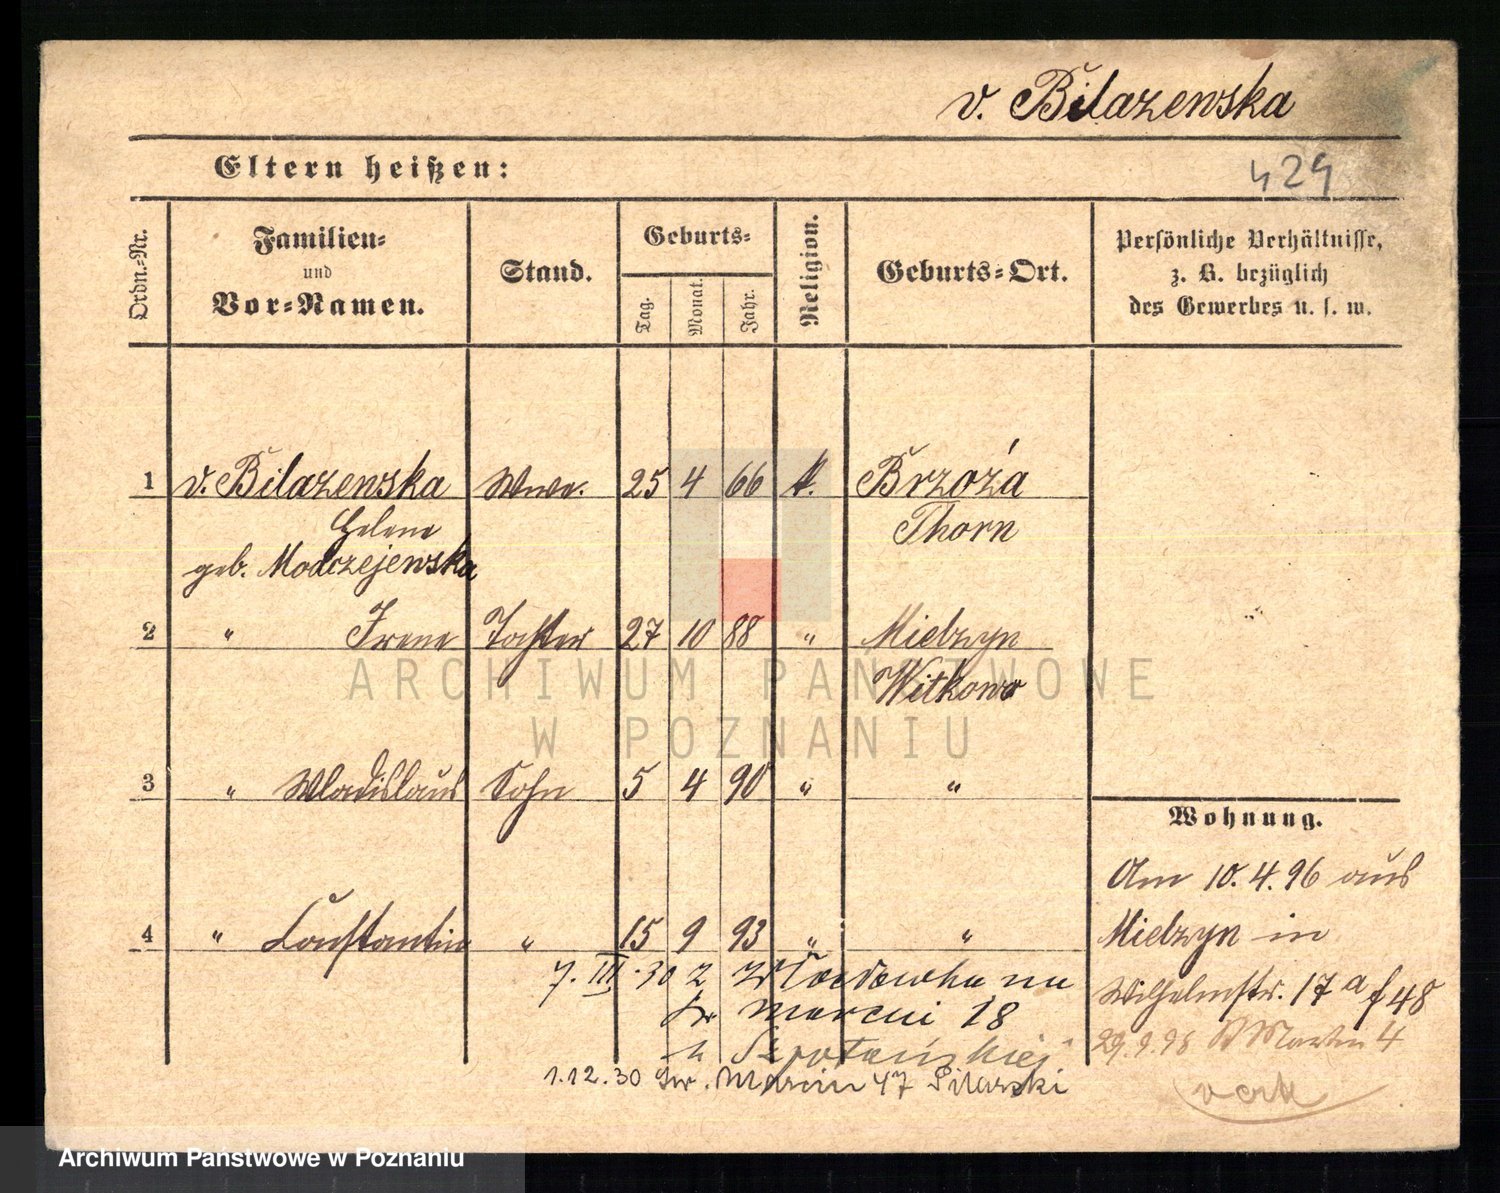 v. Bilazewska
Eltern heißen:
429
Ordn.=Nr.
Familien=
und
Vor=Namen.
Stand.
Geburts=
Tag.
Monat.
Jahr.
Religion.
Geburts=Ort.
Persönliche Verhältnisse,
z. B. bezüglich
des Gewerbes u. s. w.
1 v. Bilazewska Wwe. 25 4 66 k. Brzoza
Helene Thorn
geb. Modczejewska
2 " Irene Tochter 27 10 88 " Mielzyn
Witkowo
3 " Wladislaus Sohn 5 4 90 " "
4 " Constantin " 15 9 93 " "
7. III. 30 z Włocławka na
św Marcin 18
1.12.30 Św. Marcin 47 Pilarski
Wohnung.
Am 10.4.96 aus
Mielzyn in
Wilhelmstr. 17 a f 48
29.9.98 St Martin 4
ARCHIWUM PAŃSTWOWE
W POZNANIU
Archiwum Państwowe w Poznaniu